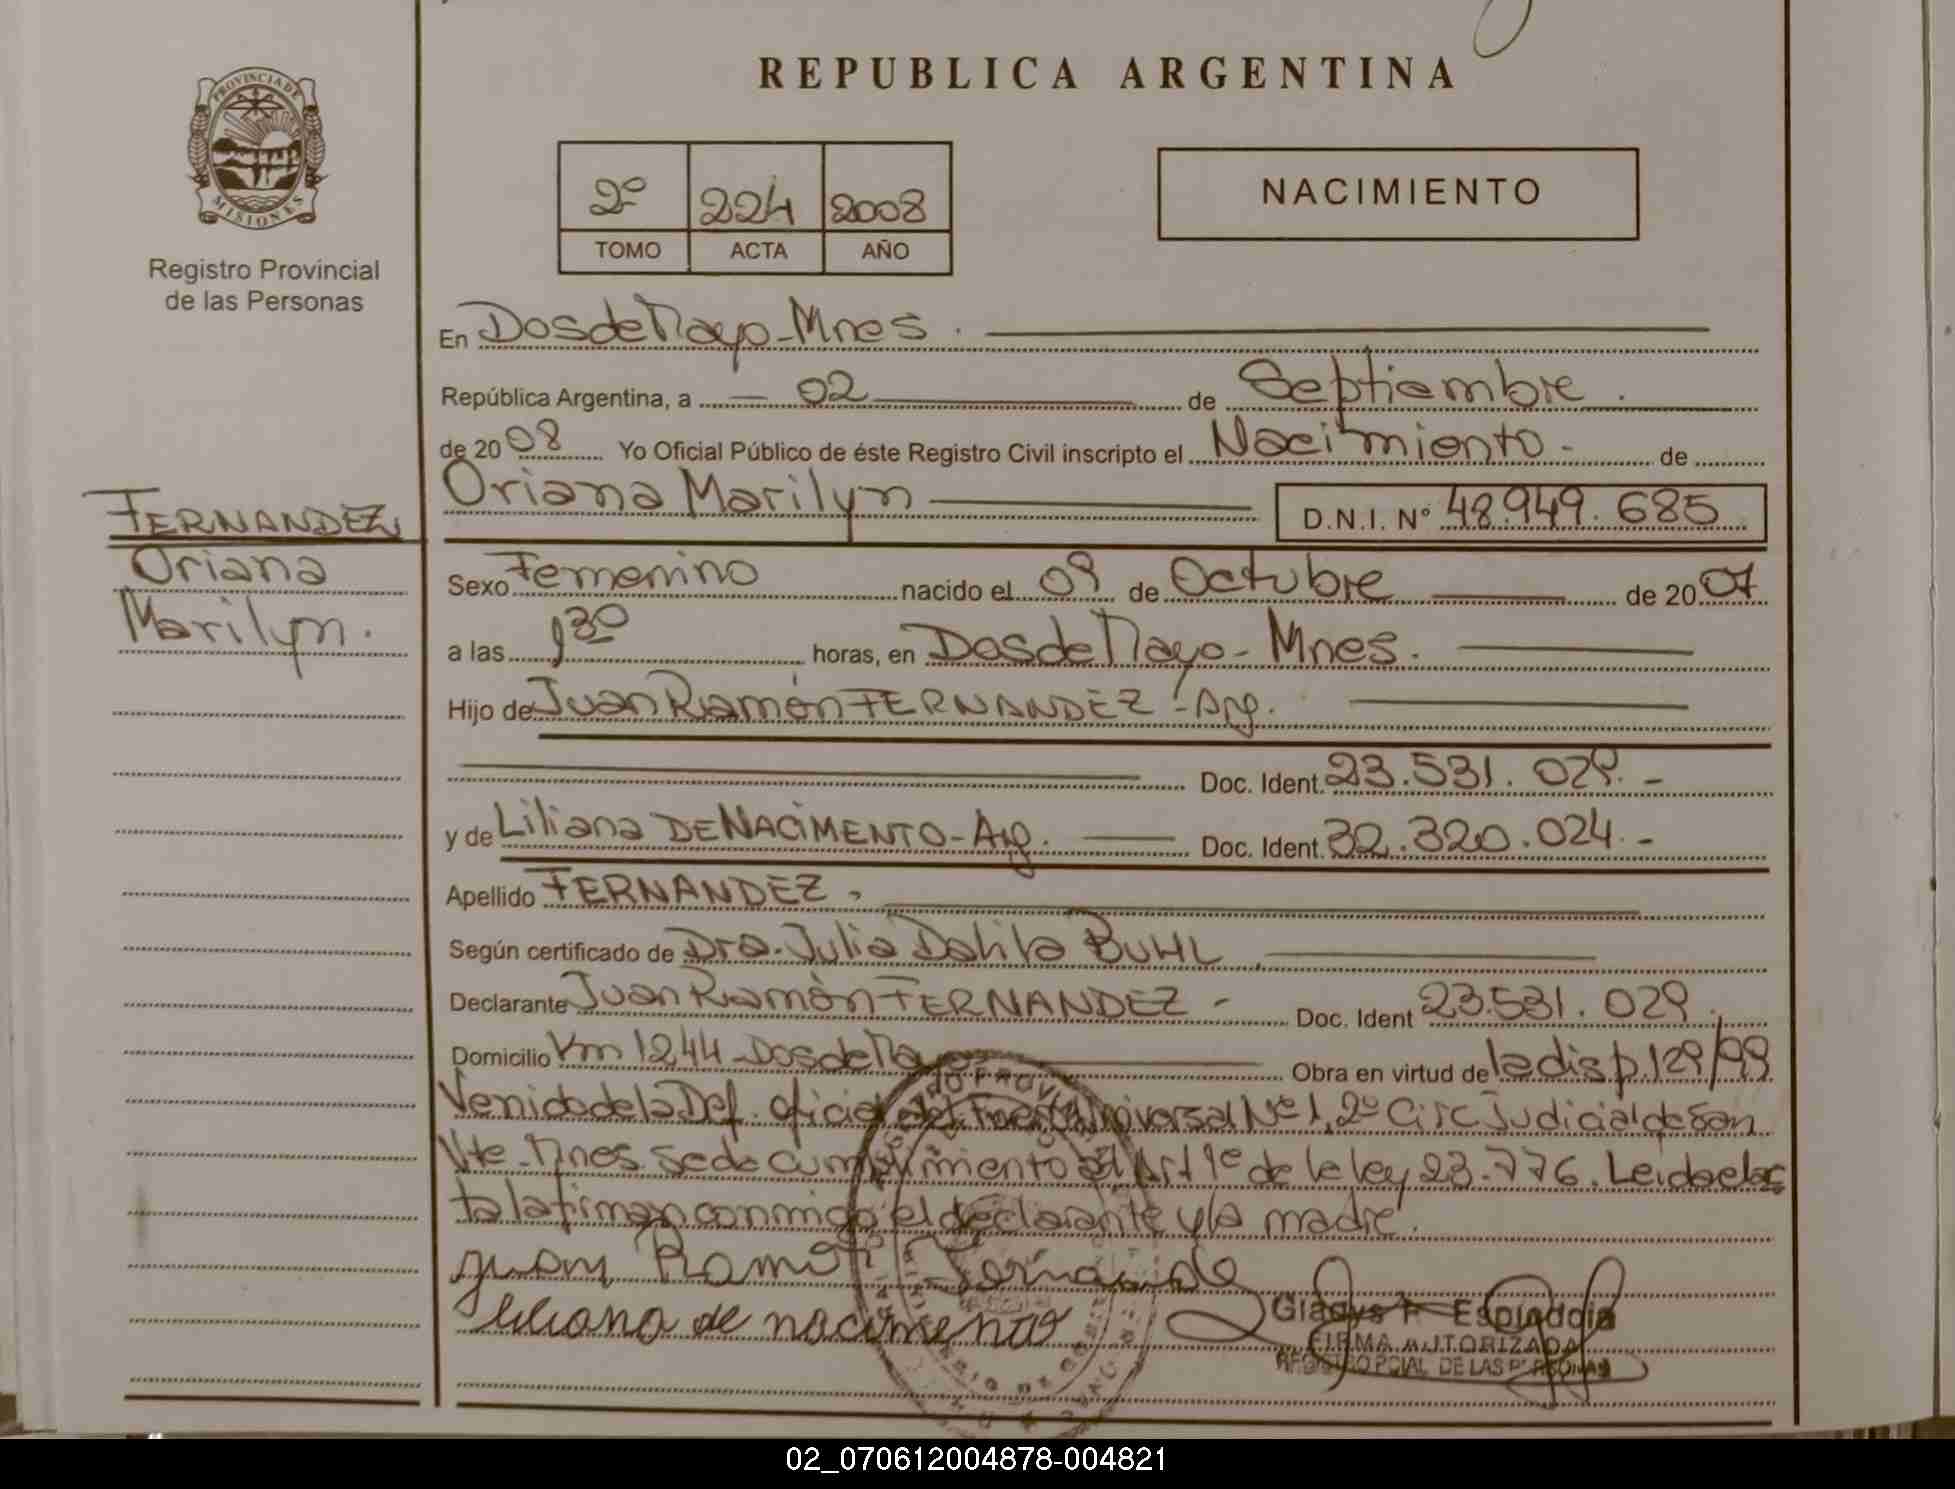 PROVINCIA DE
MISIONES
Registro Provincial
de las Personas
FERNANDEZ
Oriana
Marilyn.
REPUBLICA ARGENTINA
2º 224 2008
TOMO ACTA AÑO
NACIMIENTO
En Dos de Mayo - Mnes.
República Argentina, a 02 de Septiembre.
de 2008 Yo Oficial Público de éste Registro Civil inscripto el Nacimiento - de
Oriana Marilyn D.N.I. Nº 48.949.685
Sexo Femenino nacido el 09 de Octubre de 2007
a las horas, en Dos de Mayo - Mnes.
Hijo de Juan Ramón FERNANDEZ - Arg.
Doc. Ident. 23.531.029. -
y de Liliana DE NACIMENTO - Arg. Doc. Ident. 32.320.024. -
Apellido FERNANDEZ.
Según certificado de Dra. Julia Dalila BUHL
Declarante Juan Ramón FERNANDEZ - Doc. Ident 23.531.029.
Domicilio Km 1244 Dos de Mayo Obra en virtud de la disp. 129/99
Venido de la Def. oficial del Fuero Universal Nº 1, 2º Circ Judicial de San
Vte - Mnes se da cumplimiento al Art 1º de la ley 23.776. Leida el ac
ta la firman conmigo el declarante y la madre.
Juan Ramon Fernande
Liliana de nacimento
Gladys F. Espindola
FIRMA AUTORIZADA
REGISTRO PCIAL DE LAS PERSONAS
02_070612004878-004821